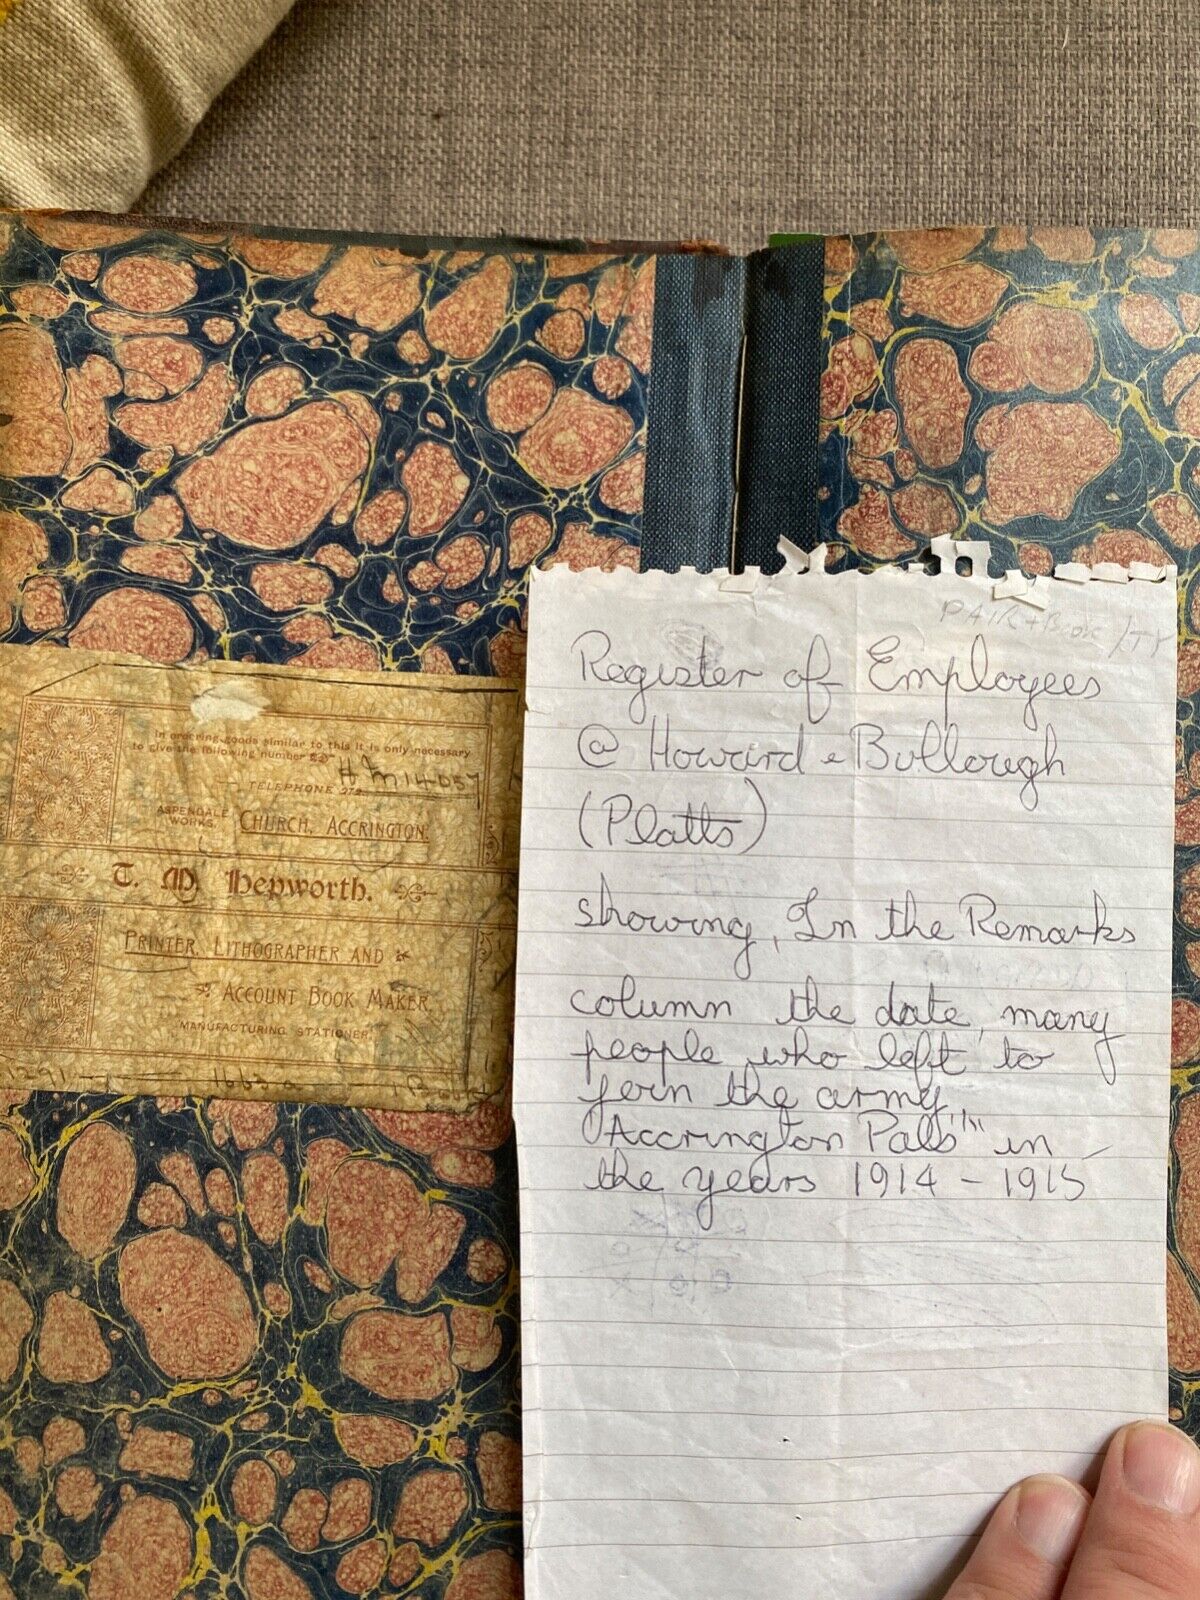 In ordering goods similar to this it is only necessary
to give the following number
H M 14057
TELEPHONE 272
ASPENDALE
WORKS.
CHURCH, ACCRINGTON.
T. M. Hepworth.
PRINTER, LITHOGRAPHER AND
ACCOUNT BOOK MAKER.
MANUFACTURING STATIONER.
Register of Employees
@ Howard & Bullough
(Platts)
showing, In the Remarks
column the date, many
people who left to
join the army
"Accrington Pals" in
the years 1914 - 1915